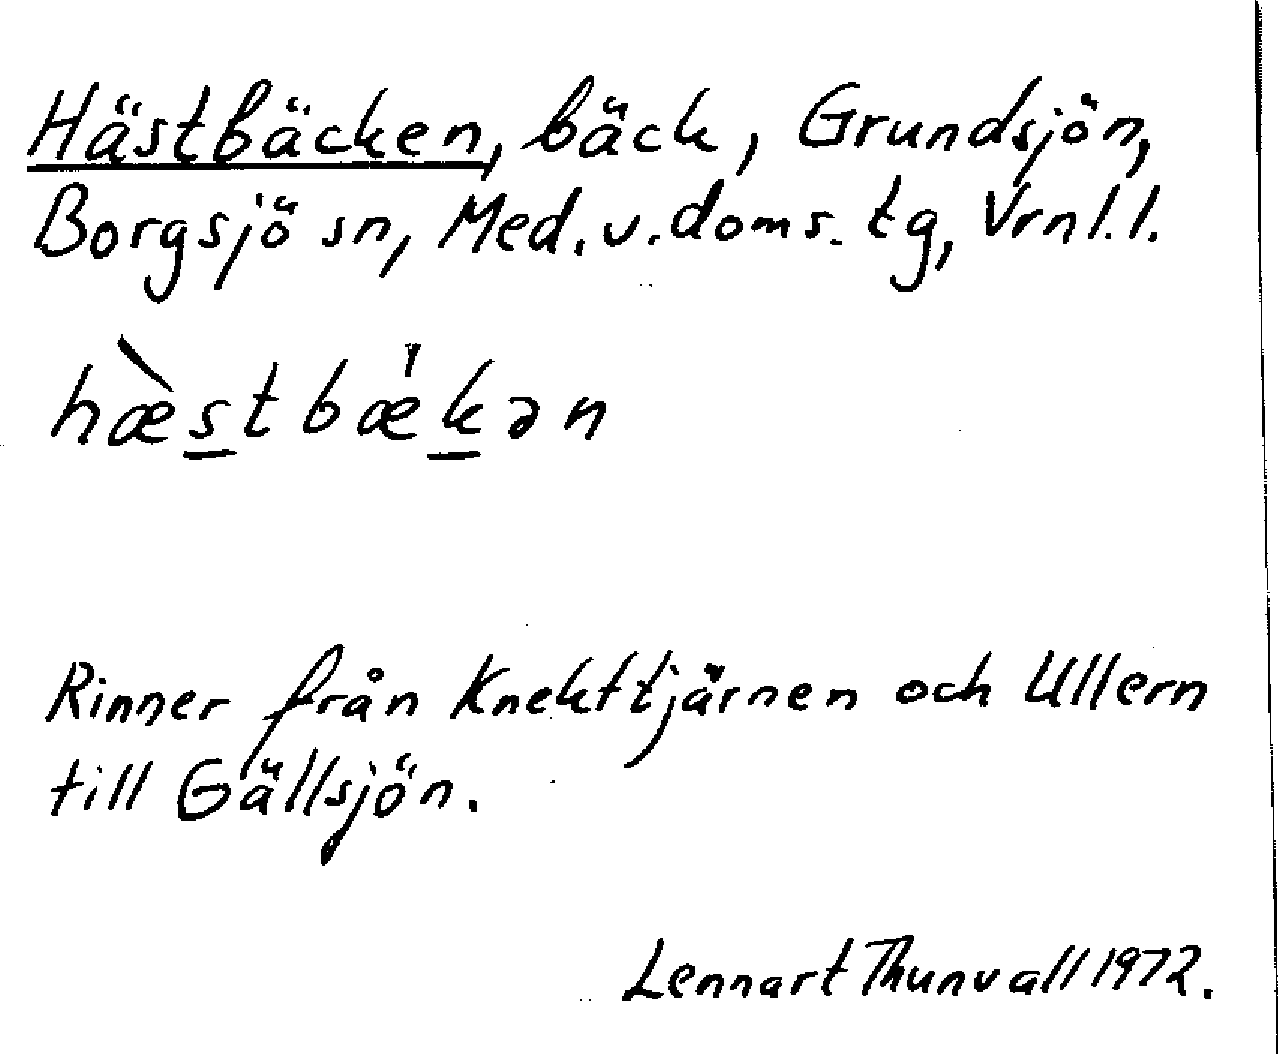 Hästbäcken, bäck, Grundsjön,
Borgsjö sn, Med. v. doms. tg, Vrnl. l.
hæ̀s̲tbæ̍k̲ən
Rinner från Knekttjärnen och Ullern
till Gällsjön.
Lennart Thunvall 1972.